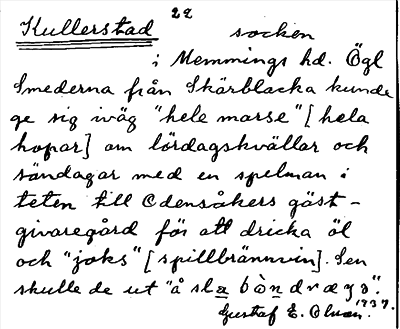 22
Kullerstad socken
i Memmings hd. Ögl
Smederna från Skärblacka kunde
ge sig iväg "hele marse" [hela
hopar] om lördagskvällar och
söndagar med en spelman i
teten till Odensåkers gäst-
givaregård för att dricka öl
och "joks" [spillbrännvin]. Sen
skulle de ut "å sla bòndrægd".
Gustaf E. 1937.